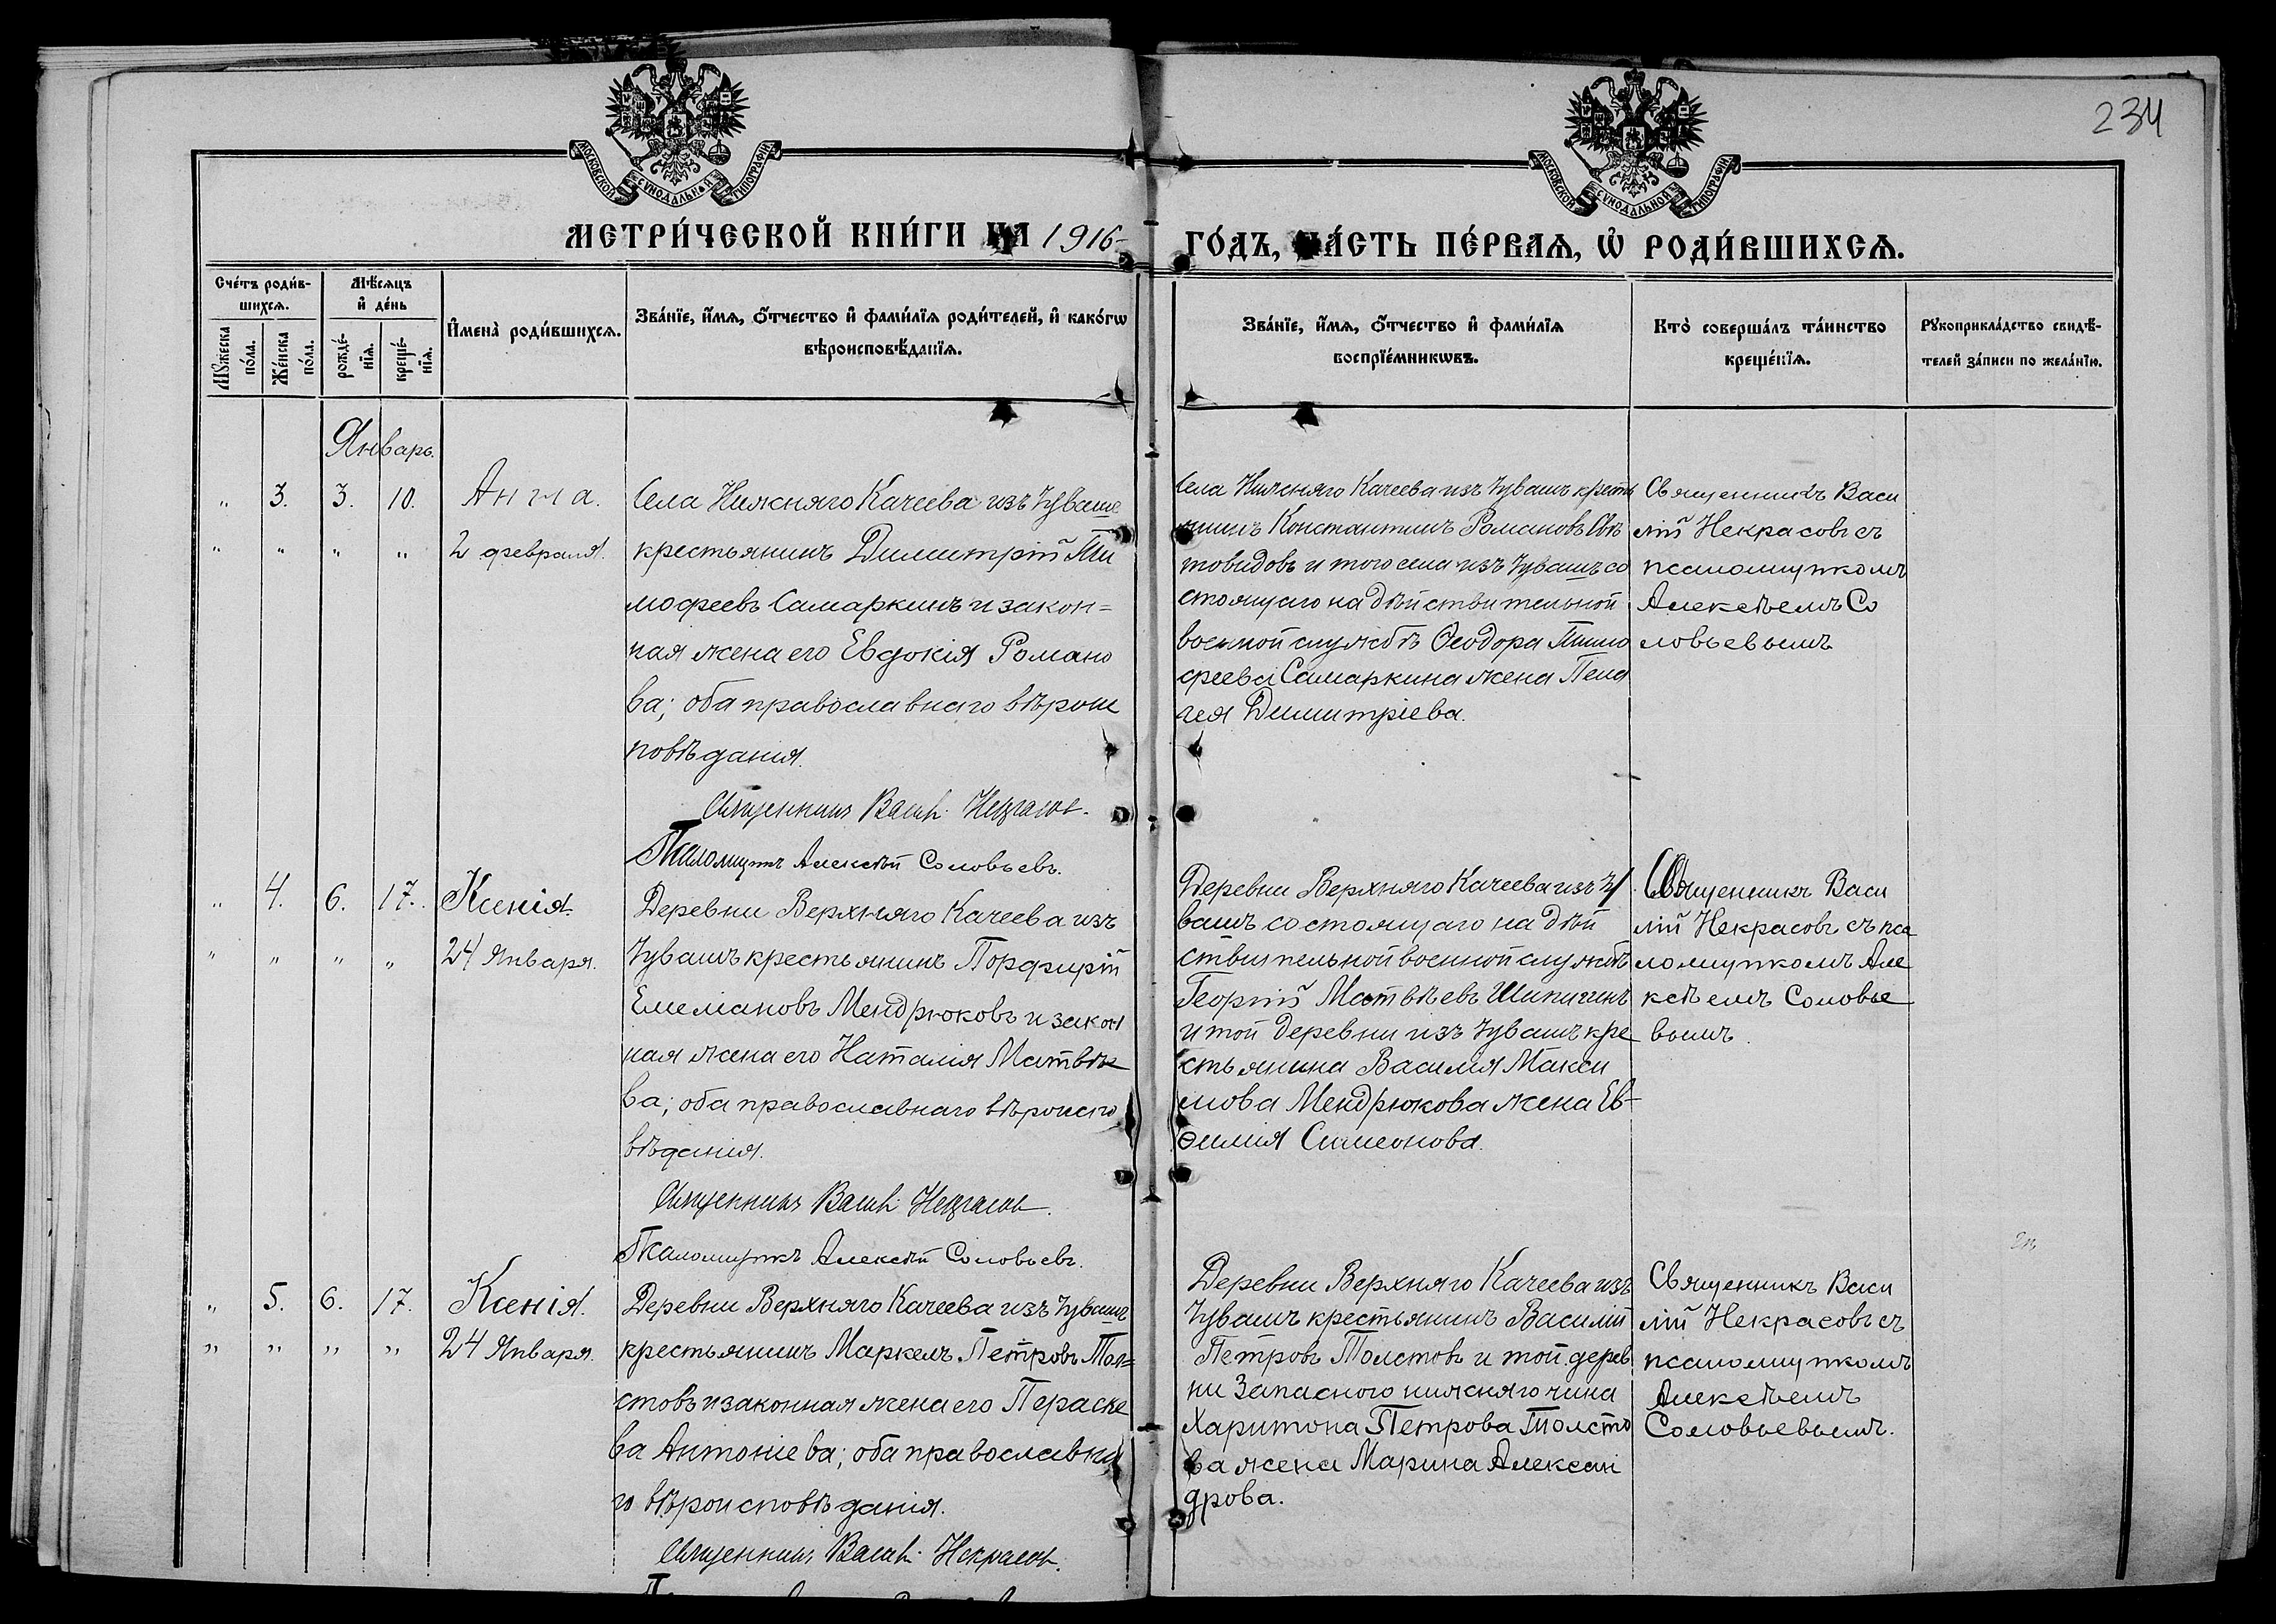 234
МОСКОВСКОЙ СѴНОДАЛЬНОЙ ТИПОГРАФІИ
МОСКОВСКОЙ СѴНОДАЛЬНОЙ ТИПОГРАФІИ
МЕТРИ́ЧЕСКОЙ КНИ́ГИ НА 1916 ГО́ДЪ, ЧА́СТЬ ПЕ́РВАѦ, Ѡ РОДИ́ВШИХСѦ.
Сче́тъ роди́в-
шихсѧ.
Мꙋ́жеска
по́ла.
Же́нска
по́ла.
Мѣ́сѧцъ
и де́нь
рожде́-
нїѧ.
креще́-
нїѧ.
Имена̀ роди́вшихсѧ.
Зва́нїе, и́мѧ, ѻ́тчество и фами́лїѧ роди́телей, и како́гѡ
вѣроисповѣ́данїѧ.
Зва́нїе, и́мѧ, ѻ́тчество и фами́лїѧ
воспрїе́мникѡвъ.
Кто̀ соверша́лъ та́инство
креще́нїѧ.
Рꙋкоприкла́дство свидѣ́-
телей за́писи по жела́нїю.
Январь.
" 3. 3. 10. Анна.
" " " " 2 февраля.
Села Нижняго Качеева изъ Чувашъ
крестьянинъ Димитрій Ти
мофеевъ Самаркинъ и закон=
ная жена его Евдокія Романо
ва; оба православнаго вѣроис
повѣданія.
Священникъ Васил. Некрасовъ.
Псаломщикъ Алексѣй Соловьевъ.
Села Нижняго Качеева изъ Чувашъ кресть
янинъ Константинъ Романовъ Свѣ
товидовъ и того села изъ Чувашъ со
стоящаго на дѣйствительной
военной службѣ Ѳеодора Тимо
феева Самаркина жена Пела
гея Димитріева.
Священникъ Васи
лій Некрасовъ съ
псаломщикомъ
Алексѣемъ Со
ловьевымъ
" 4. 6. 17. Ксенія.
" " " " 24 Января.
Деревни Верхняго Качеева изъ
Чувашъ крестьянинъ Порфирій
Емеліановъ Мендрюковъ и закон
ная жена его Наталія Матвѣе
ва; оба православнаго вѣроиспо
вѣданія.
Священникъ Васил. Некрасовъ.
Псаломщикъ Алексѣй Соловьевъ.
Деревни Верхняго Качеева изъ Чу
вашъ состоящаго на дѣй
ствительной военной службѣ
Георгій Матвѣевъ Шипигинъ
и той деревни изъ Чувашъ кре
стьянина Василія Макси
мова Мендрюкова жена Ев-
ѳимія Симеонова.
Священникъ Васи
лій Некрасовъ съ пса
ломщикомъ Але
ксѣемъ Соловье
вымъ.
" 5. 6. 17. Ксенія.
" " " " 24 Января.
Деревни Верхняго Качеева изъ Чувашъ
крестьянинъ Маркелъ Петровъ Тол=
стовъ и законная жена его Параске
ва Антоніева; оба православна
го вѣроисповѣданія.
Священникъ Васил. Некрасовъ.
Деревни Верхняго Качеева изъ
Чувашъ крестьянинъ Василій
Петровъ Толстовъ и той дерев
ни Запасного нижняго чина
Харитона Петрова Толсто
ва жена Марина Алексан
дрова.
Священникъ Васи
лій Некрасовъ съ
псаломщикомъ
Алексѣемъ
Соловьевымъ.